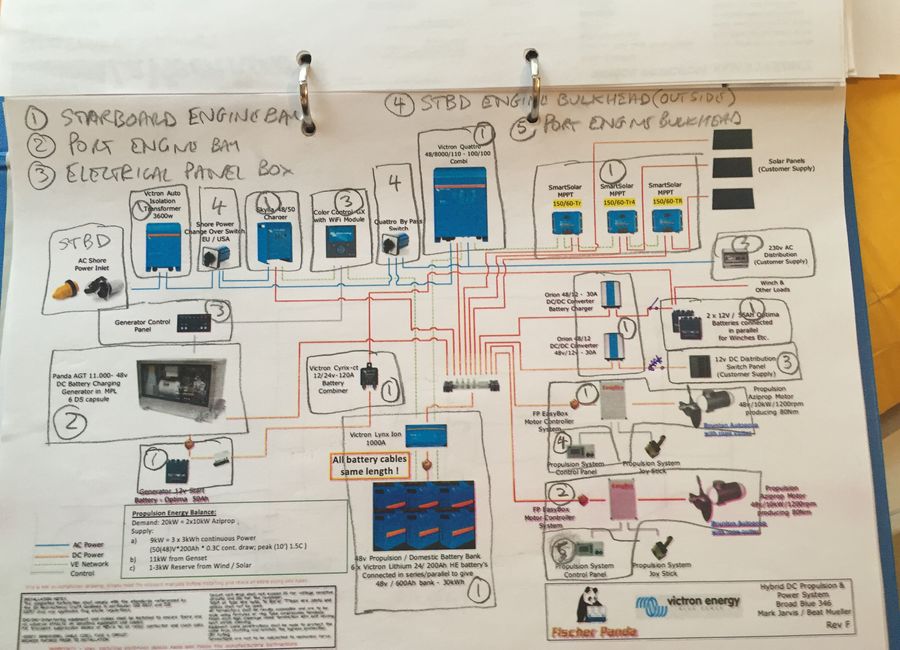 ① STARBOARD ENGINE BAY
② PORT ENGINE BAY
③ ELECTRICAL PANEL BOX
④ STBD ENGINE BULKHEAD (OUTSIDE)
⑤ PORT ENGINE BULKHEAD
STBD
AC Shore
Power Inlet
Victron Auto
Isolation
Transformer
3600w
1
4
Shore Power
Change Over Switch
EU / USA
1
Skylla 48/50
Charger
3
Color Control GX
with WiFi Module
4
Quattro By Pass
Switch
1
Victron Quattro
48/8000/110 - 100/100
Combi
1
SmartSolar
MPPT
150/60-Tr
SmartSolar
MPPT
150/60-Tr4
SmartSolar
MPPT
150/60-TR
Solar Panels
(Customer Supply)
3
230v AC
Distribution
(Customer Supply)
Winch &
Other Loads
Generator Control
Panel
3
Orion 48/12 - 30A
DC/DC Converter
Battery Charger
Orion 48/12
DC/DC Converter
48v/12v - 30A
1
1
2 x 12V / 55AH Optima
Batteries connected
in parallel
for Winches Etc.
12v DC Distribution
Switch Panel
(Customer Supply)
3
Panda AGT 11.000- 48v
DC Battery Charging
Generator in MPL
6 DS capsule
2
Victron Cyrix-ct
12/24v-120A
Battery
Combiner
1
1
FP EasyBox
Motor Controller
System
Propulsion
Aziprop Motor
48v/10kW/1200rpm
producing 80Nm
4
Propulsion System
Control Panel
Propulsion System
Joy Stick
Victron Lynx Ion
1000A
All battery cables
same length !
1
Generator 12v Start
Battery - Optima 50Ah
2
FP EasyBox
Motor Controller
System
Propulsion
Aziprop Motor
48v/10kW/1200rpm
producing 80Nm
5
Propulsion System
Control Panel
Propulsion System
Joy Stick
AC Power
DC Power
VE Network
Control
Propulsion Energy Balance:
Demand: 20kW = 2x10kW Aziprop
Supply:
a) 9kW = 3 x 3kWh continuous Power
(50(48)V*200Ah * 0.3C cont. draw; peak (10') 1.5C )
b) 11kW from Genset
c) 1-3kW Reserve from Wind / Solar
48v Propulsion / Domestic Battery Bank
6 x Victron Lithium 24/ 200Ah HE battery's
Connected in series/parallel to give
48v / 600Ah bank - 30kWh
1
Fischer Panda
victron energy
Hybrid DC Propulsion &
Power System
Broad Blue 346
Mark Jarvis / Beat Mueller
Rev F